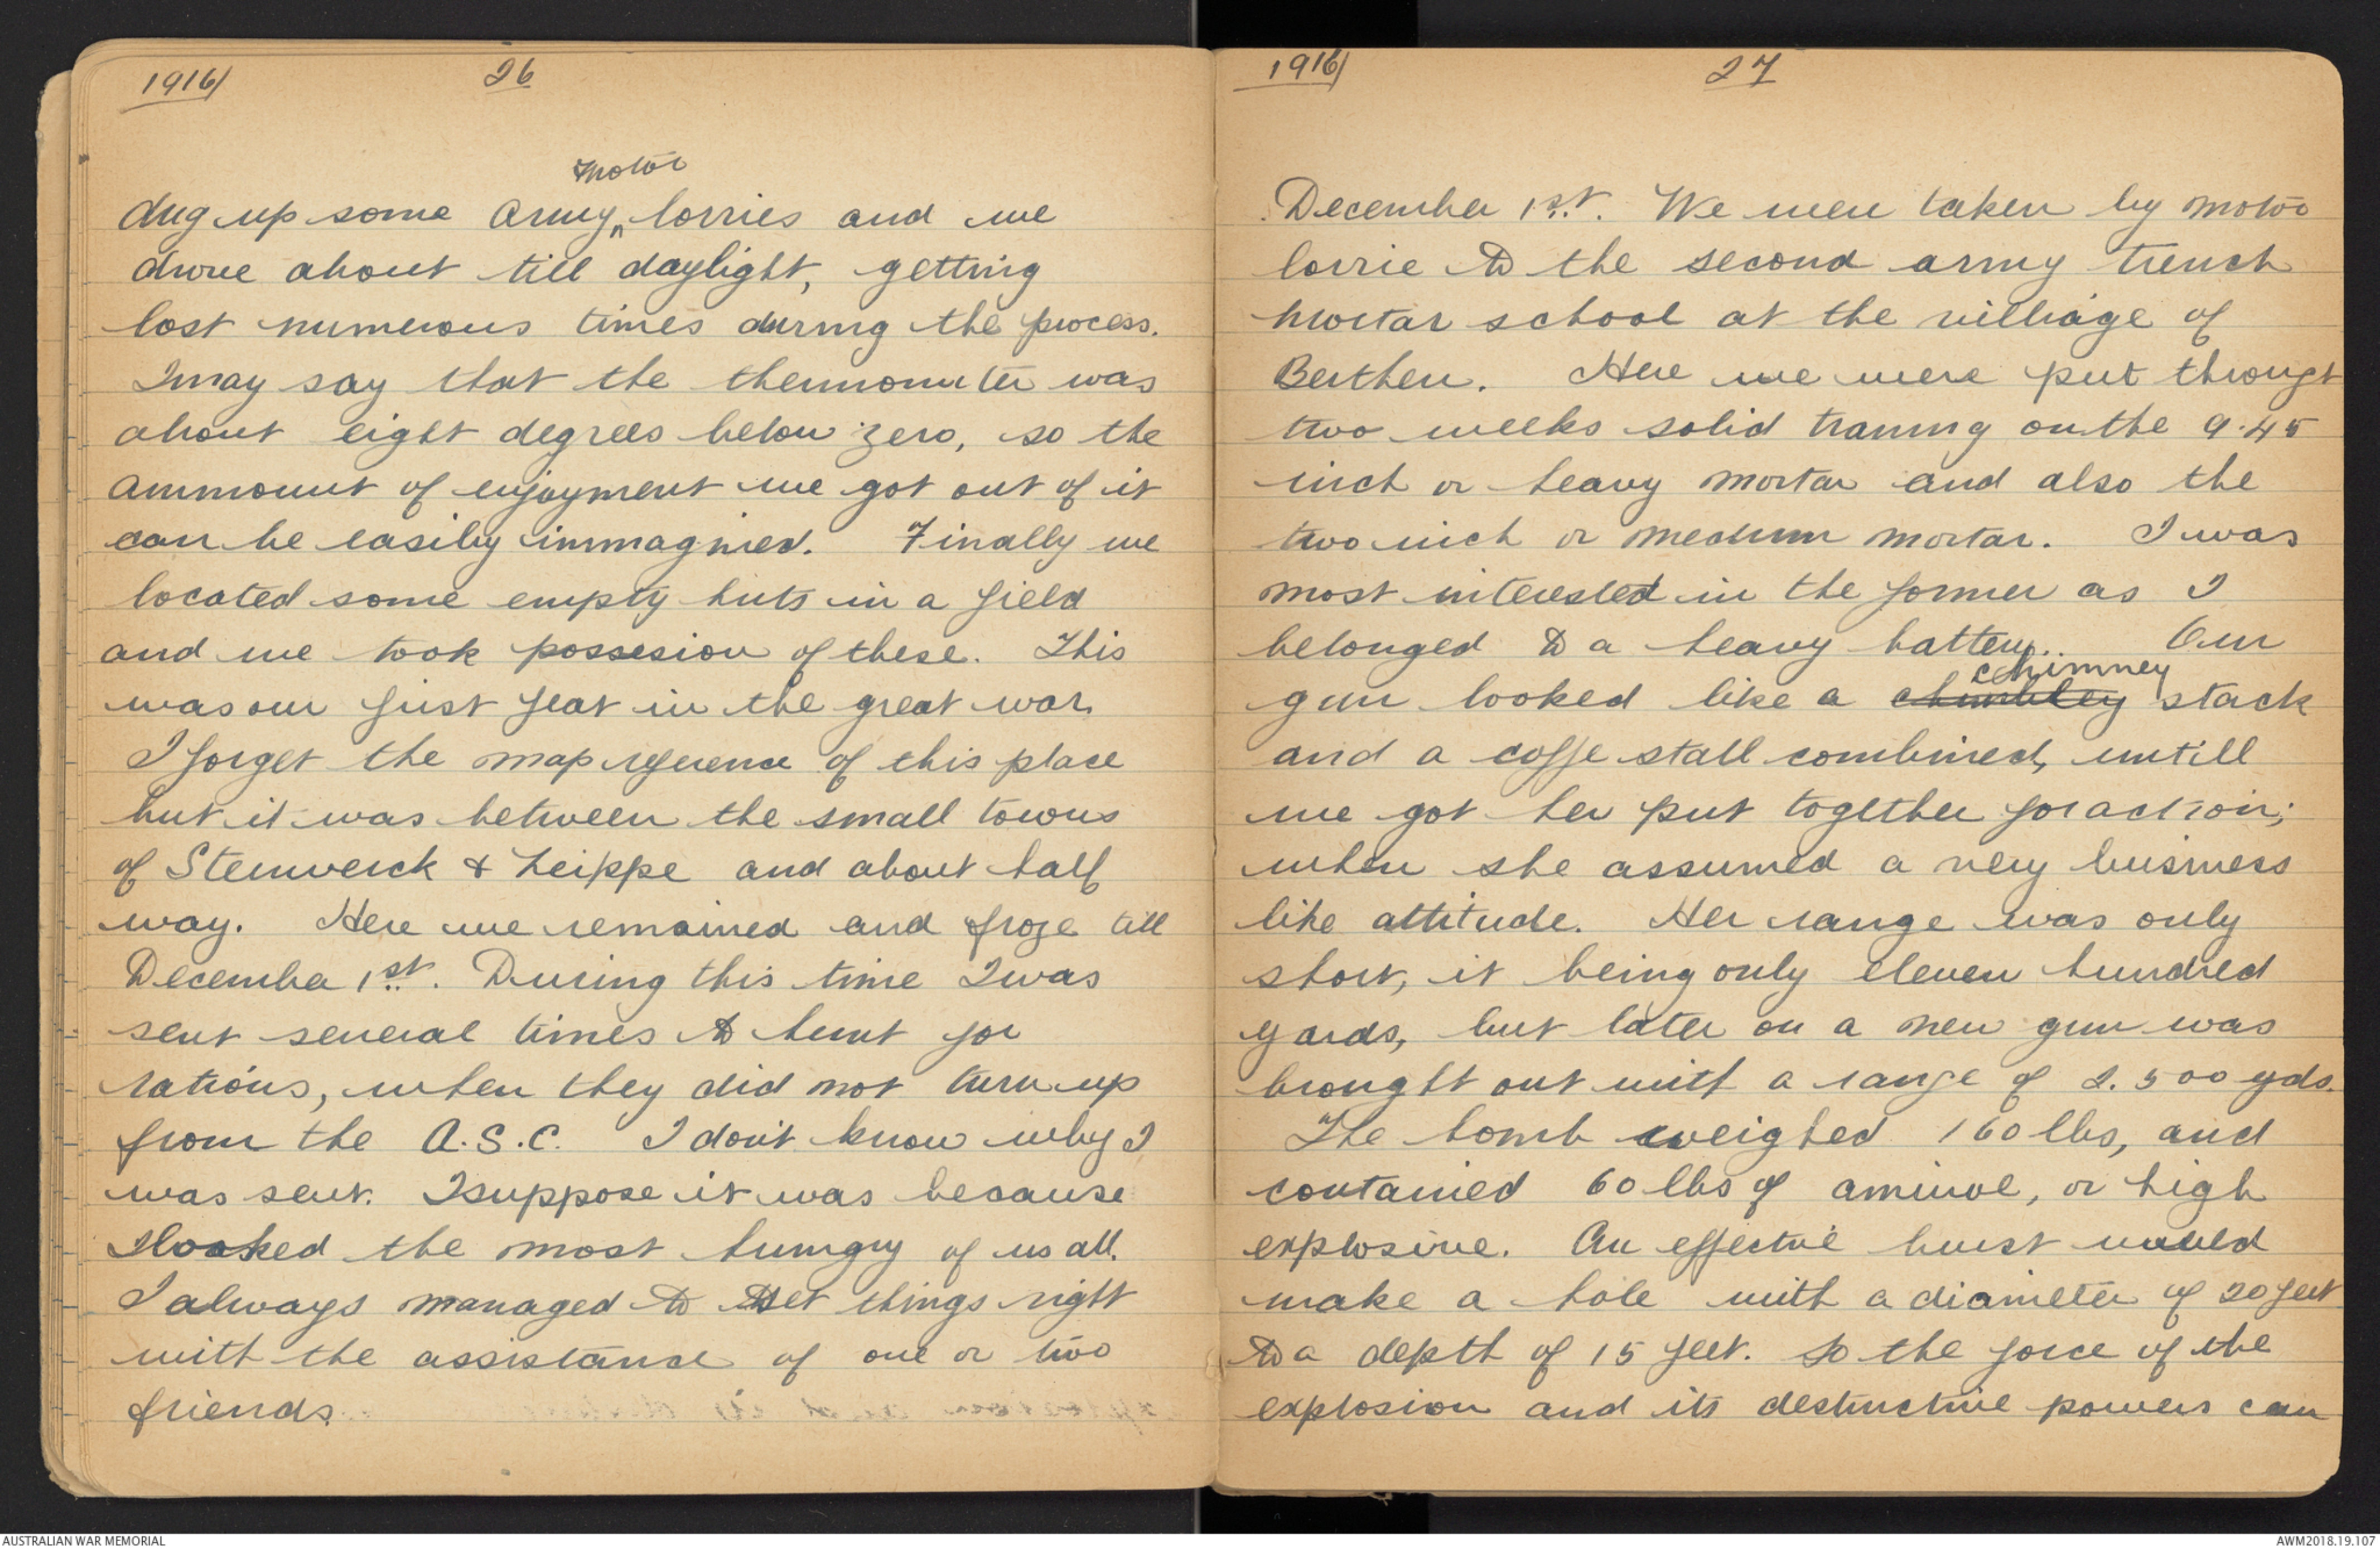 1916/
26
motor
dug up some Army lorries and we
drove about till daylight, getting
lost numerous times during the process.
I may say that the thermometer was
about eight degrees below zero, so the
ammount of enjoyment we got out of it
can be easily immagined. Finally we
located some empty huts in a field
and we took possesion of these. This
was our first feat in the great war.
I forget the map reference of this place
but it was between the small towns
of Steinwerck & Leippe and about half
way. Here we remained and froze till
December 1st. During this time I was
sent several times to hunt for
rations, when they did not turn up
from the A.S.C. I don't know why I
was sent. I suppose it was because
I looked the most hungry of us all.
I always managed to set things right
with the assistance of one or two
friends.
1916/
27
December 1st. We were taken by motor
lorrie to the second army trench
mortar school at the villiage of
Berthen. Here we were put through
two weeks solid traning on the 9.45
inch or heavy mortar and also the
two inch or medium mortar. I was
most interested in the former as I
belonged to a heavy battery. Our
chimney
gun looked like a chimbley stack
and a coffe stall combined, untill
we got her put together for action;
when she assumed a very business
like attitude. Her range was only
short, it being only eleven hundred
yards, but later on a new gun was
brought out with a range of 2.500 yds.
The bomb weighed 160 lbs, and
contained 60 lbs of aminol, or high
explosive. An effective burst would
make a hole with a diameter of 20 feet
to a depth of 15 feet. So the force of the
explosion and its destructive powers can
AUSTRALIAN WAR MEMORIAL
AWM2018.19.107